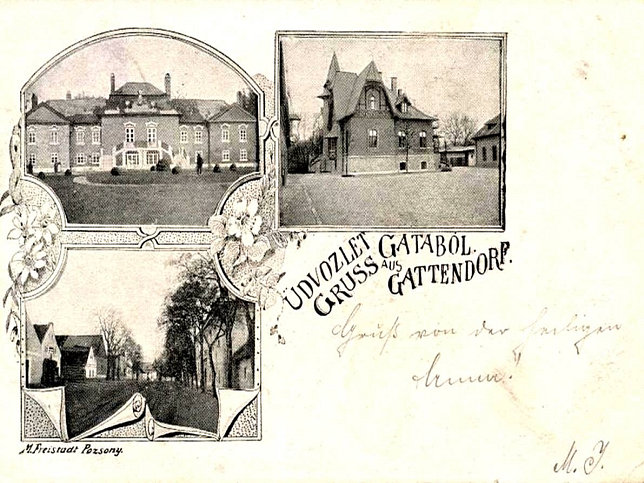 ÜDVOZLET GATABÓL.
GRUSS AUS GATTENDORF.
Gruß von der heiligen
Anna!
M. J.
M. Freistadt Pozsony.